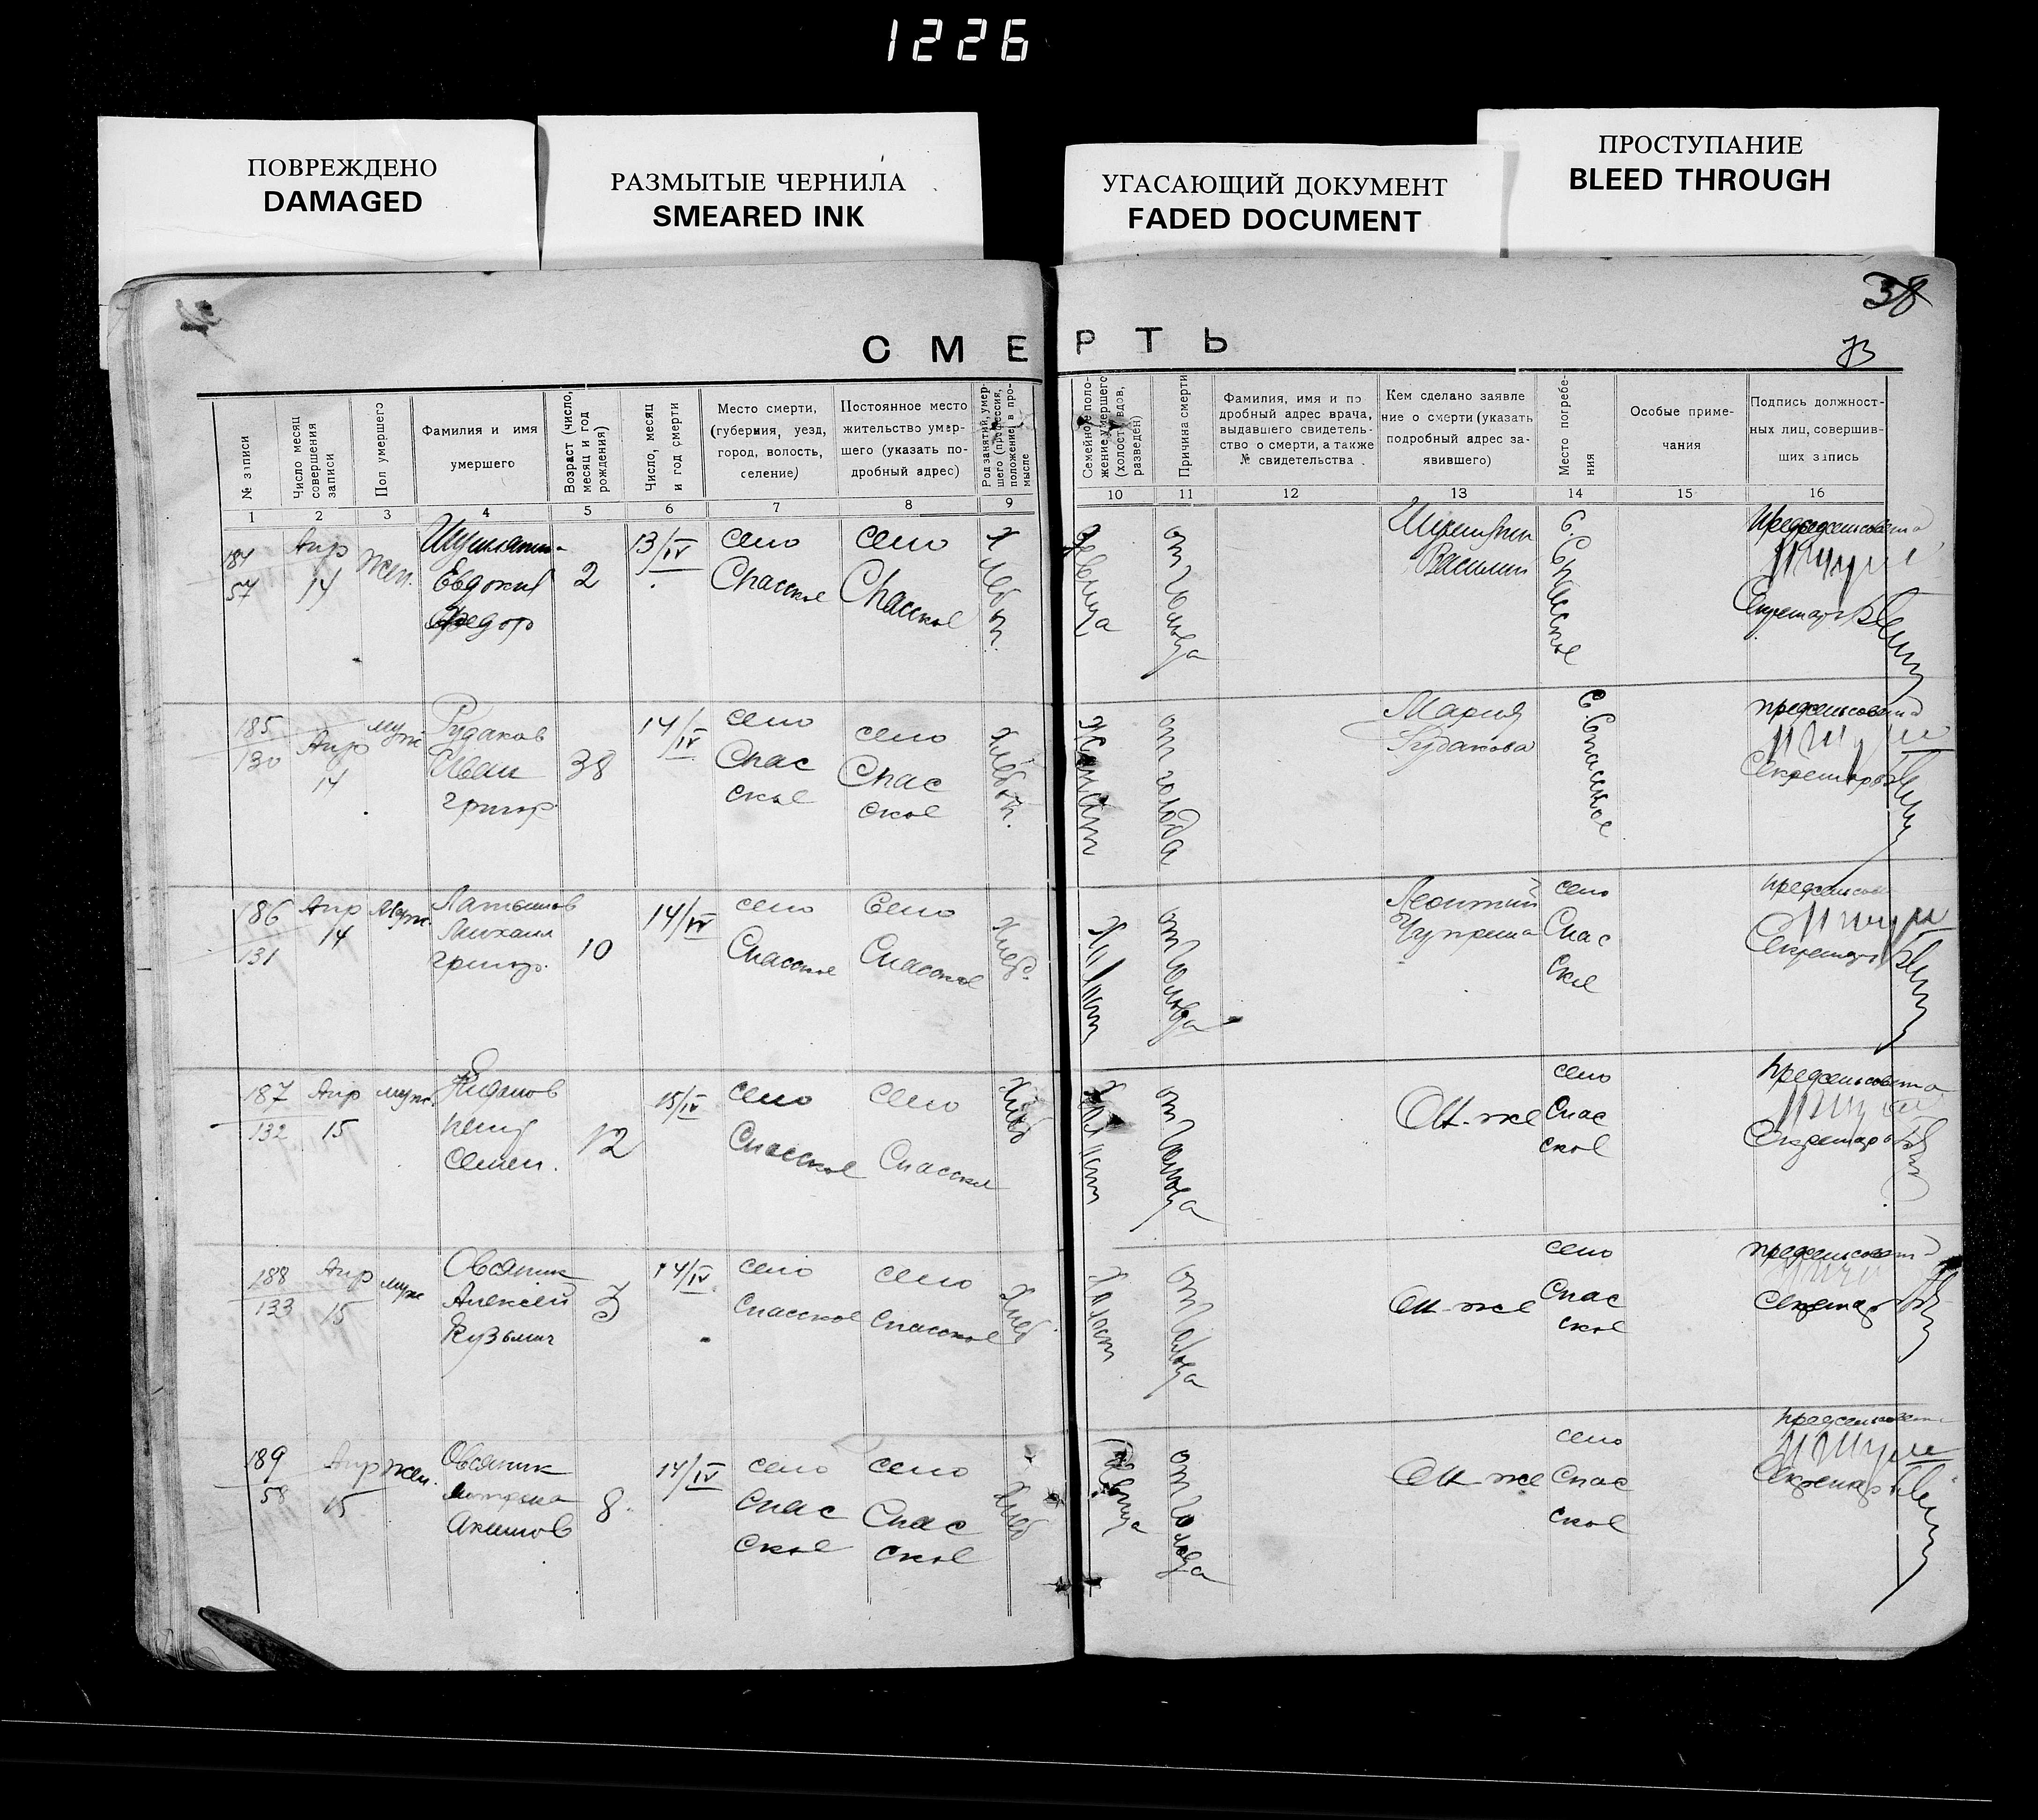 1226
ПОВРЕЖДЕНО
DAMAGED
РАЗМЫТЫЕ ЧЕРНИЛА
SMEARED INK
УГАСАЮЩИЙ ДОКУМЕНТ
FADED DOCUMENT
ПРОСТУПАНИЕ
BLEED THROUGH
38
СМЕРТЬ
№ записи
Число месяц
совершения
записи
Пол умершего
Фамилия и имя
умершего
Возраст (число,
месяц и год
рождения)
Число, месяц
и год смерти
Место смерти,
(губерния, уезд,
город, волость,
селение)
Постоянное место
жительство умер-
шего (указать по-
дробный адрес)
Род занятий, умер-
шего (профессия,
положение в про-
мысле
Семейное поло-
жение умершего
(холост, вдов,
разведен)
Причина смерти
Фамилия, имя и по
дробный адрес врача,
выдавшего свидетель-
ство о смерти, а также
№ свидетельства
Кем сделано заявле
ние о смерти (указать
подробный адрес за-
явившего)
Место погребе-
ния
Особые приме-
чания
Подпись должност-
ных лиц, совершив-
ших запись
1 2 3 4 5 6 7 8 9 10 11 12 13 14 15 16
184
57
Апр
14
жен.
Евдокия
Федор
2
13/IV
село
Спасское
село
Спасское
Хлебоп.
девица
от голода
Василий
С. Спасское
Секретарь
185
130
Апр
14
муж
Рудаков
Иван
григор
38
14/IV
село
Спас
ское
село
Спас
ское
Хлебоп.
Женат
от голода
Мария
Рудакова
С. Спасское
предсельсовета
Секретарь
186
131
Апр
14
Муж.
Михаил
григор.
10
14/IV
село
Спасское
Село
Спасское
Хлеб.
Холост
от голода
Леонтий
Чуприна
село
Спас
ское
Секретарь
187
132
Апр
15
муж.
Семен.
12
15/IV
село
Спасское
село
Спасское
Хлеб
Холост
от голода
Он-же
село
Спас
ское
Предсельсовета
Секретарь
188
133
Апр
15
муж
Овсяник
Алексей
Кузьмич
3
14/IV
село
Спасское
село
Спасское
Хлеб
Холост
от голода
Он-же
село
Спас
ское
предсельсовета
Секретарь
189
58
Апр
15
жен.
Овсяник
Акимов
8.
14/IV
село
Спас
ское
село
Спас
ское
Хлеб
девица
от голода
Он-же
село
Спас
ское
предсельсовета
Секретарь